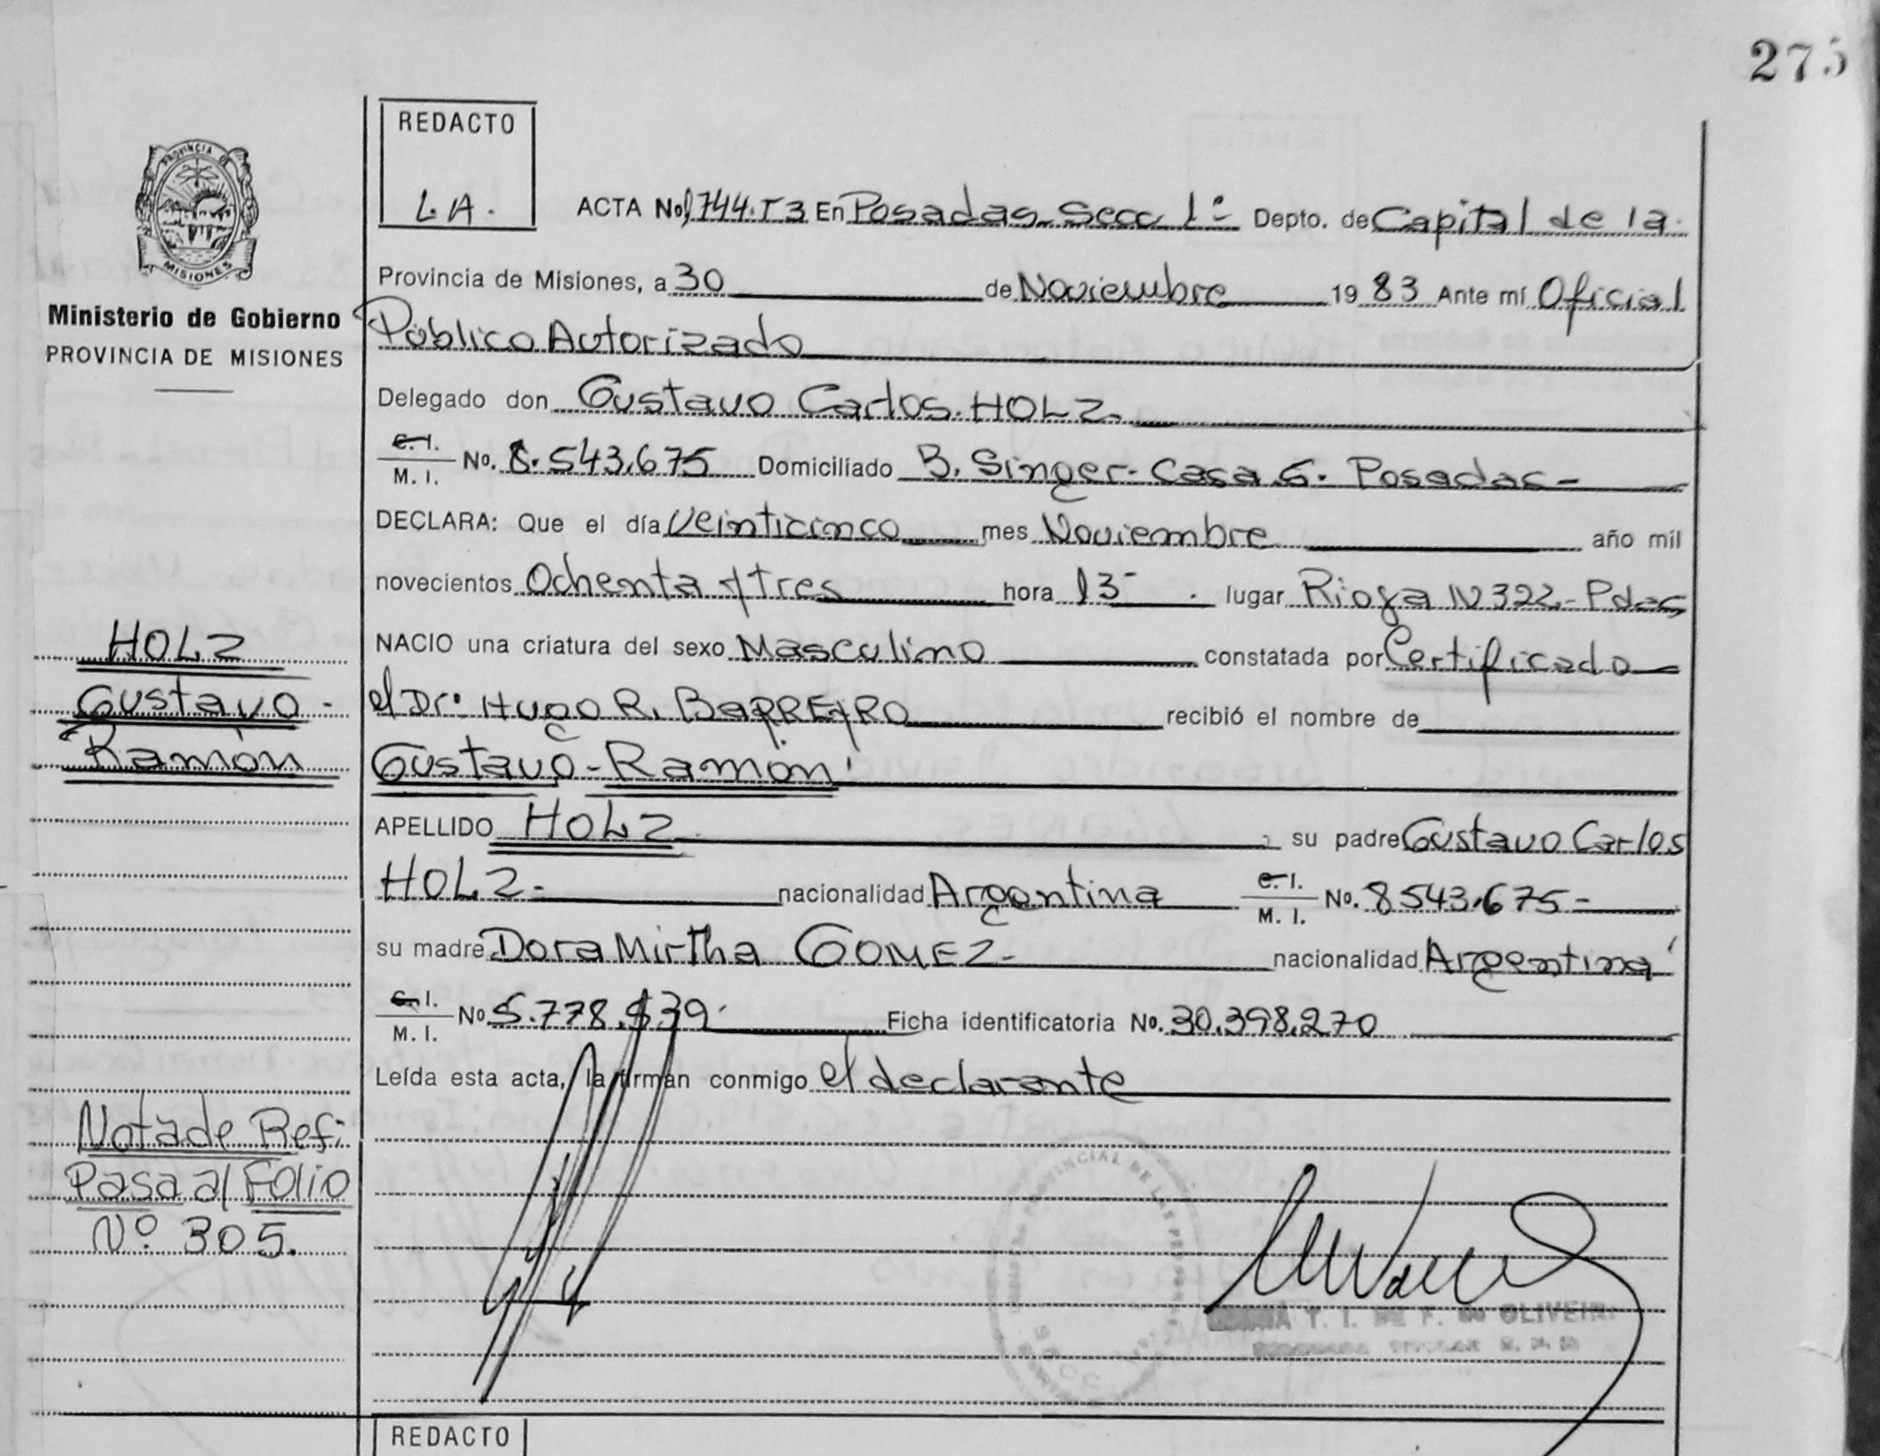 275
REDACTO
L.A.
ACTA No 1744.T3 En Posadas Secc 1º Depto. de Capital de la
Provincia de Misiones, a 30 de Noviembre 19 83 Ante mí Oficial
Público Autorizado
Delegado don Gustavo Carlos HOLZ
C. I.
M. I. No. 8.543.675 Domiciliado B. Singer - Casa 6. Posadas -
DECLARA: Que el día Veinticinco mes Noviembre año mil
novecientos Ochenta y tres hora 13 lugar Rioja Nº 322 - Pdas
NACIO una criatura del sexo Masculino constatada por Certificado
el Dr. Hugo R. BARREYRO recibió el nombre de
Gustavo - Ramón
APELLIDO HOLZ su padre Gustavo Carlos
HOLZ - nacionalidad Argentina C. I.
M. I. No. 8543.675 -
su madre Dora Mirtha GOMEZ - nacionalidad Argentina
C. I.
M. I. No 5.778.939 Ficha identificatoria No. 30.398.270
Leída esta acta, la firman conmigo el declarante
PROVINCIA DE
MISIONES
Ministerio de Gobierno
PROVINCIA DE MISIONES
HOLZ
Gustavo -
Ramón
Nota de Ref:
Pasa al Folio
Nº 305.
PROVINCIAL DE LAS
T. I. DE F. OLIVEIRA
REDACTO